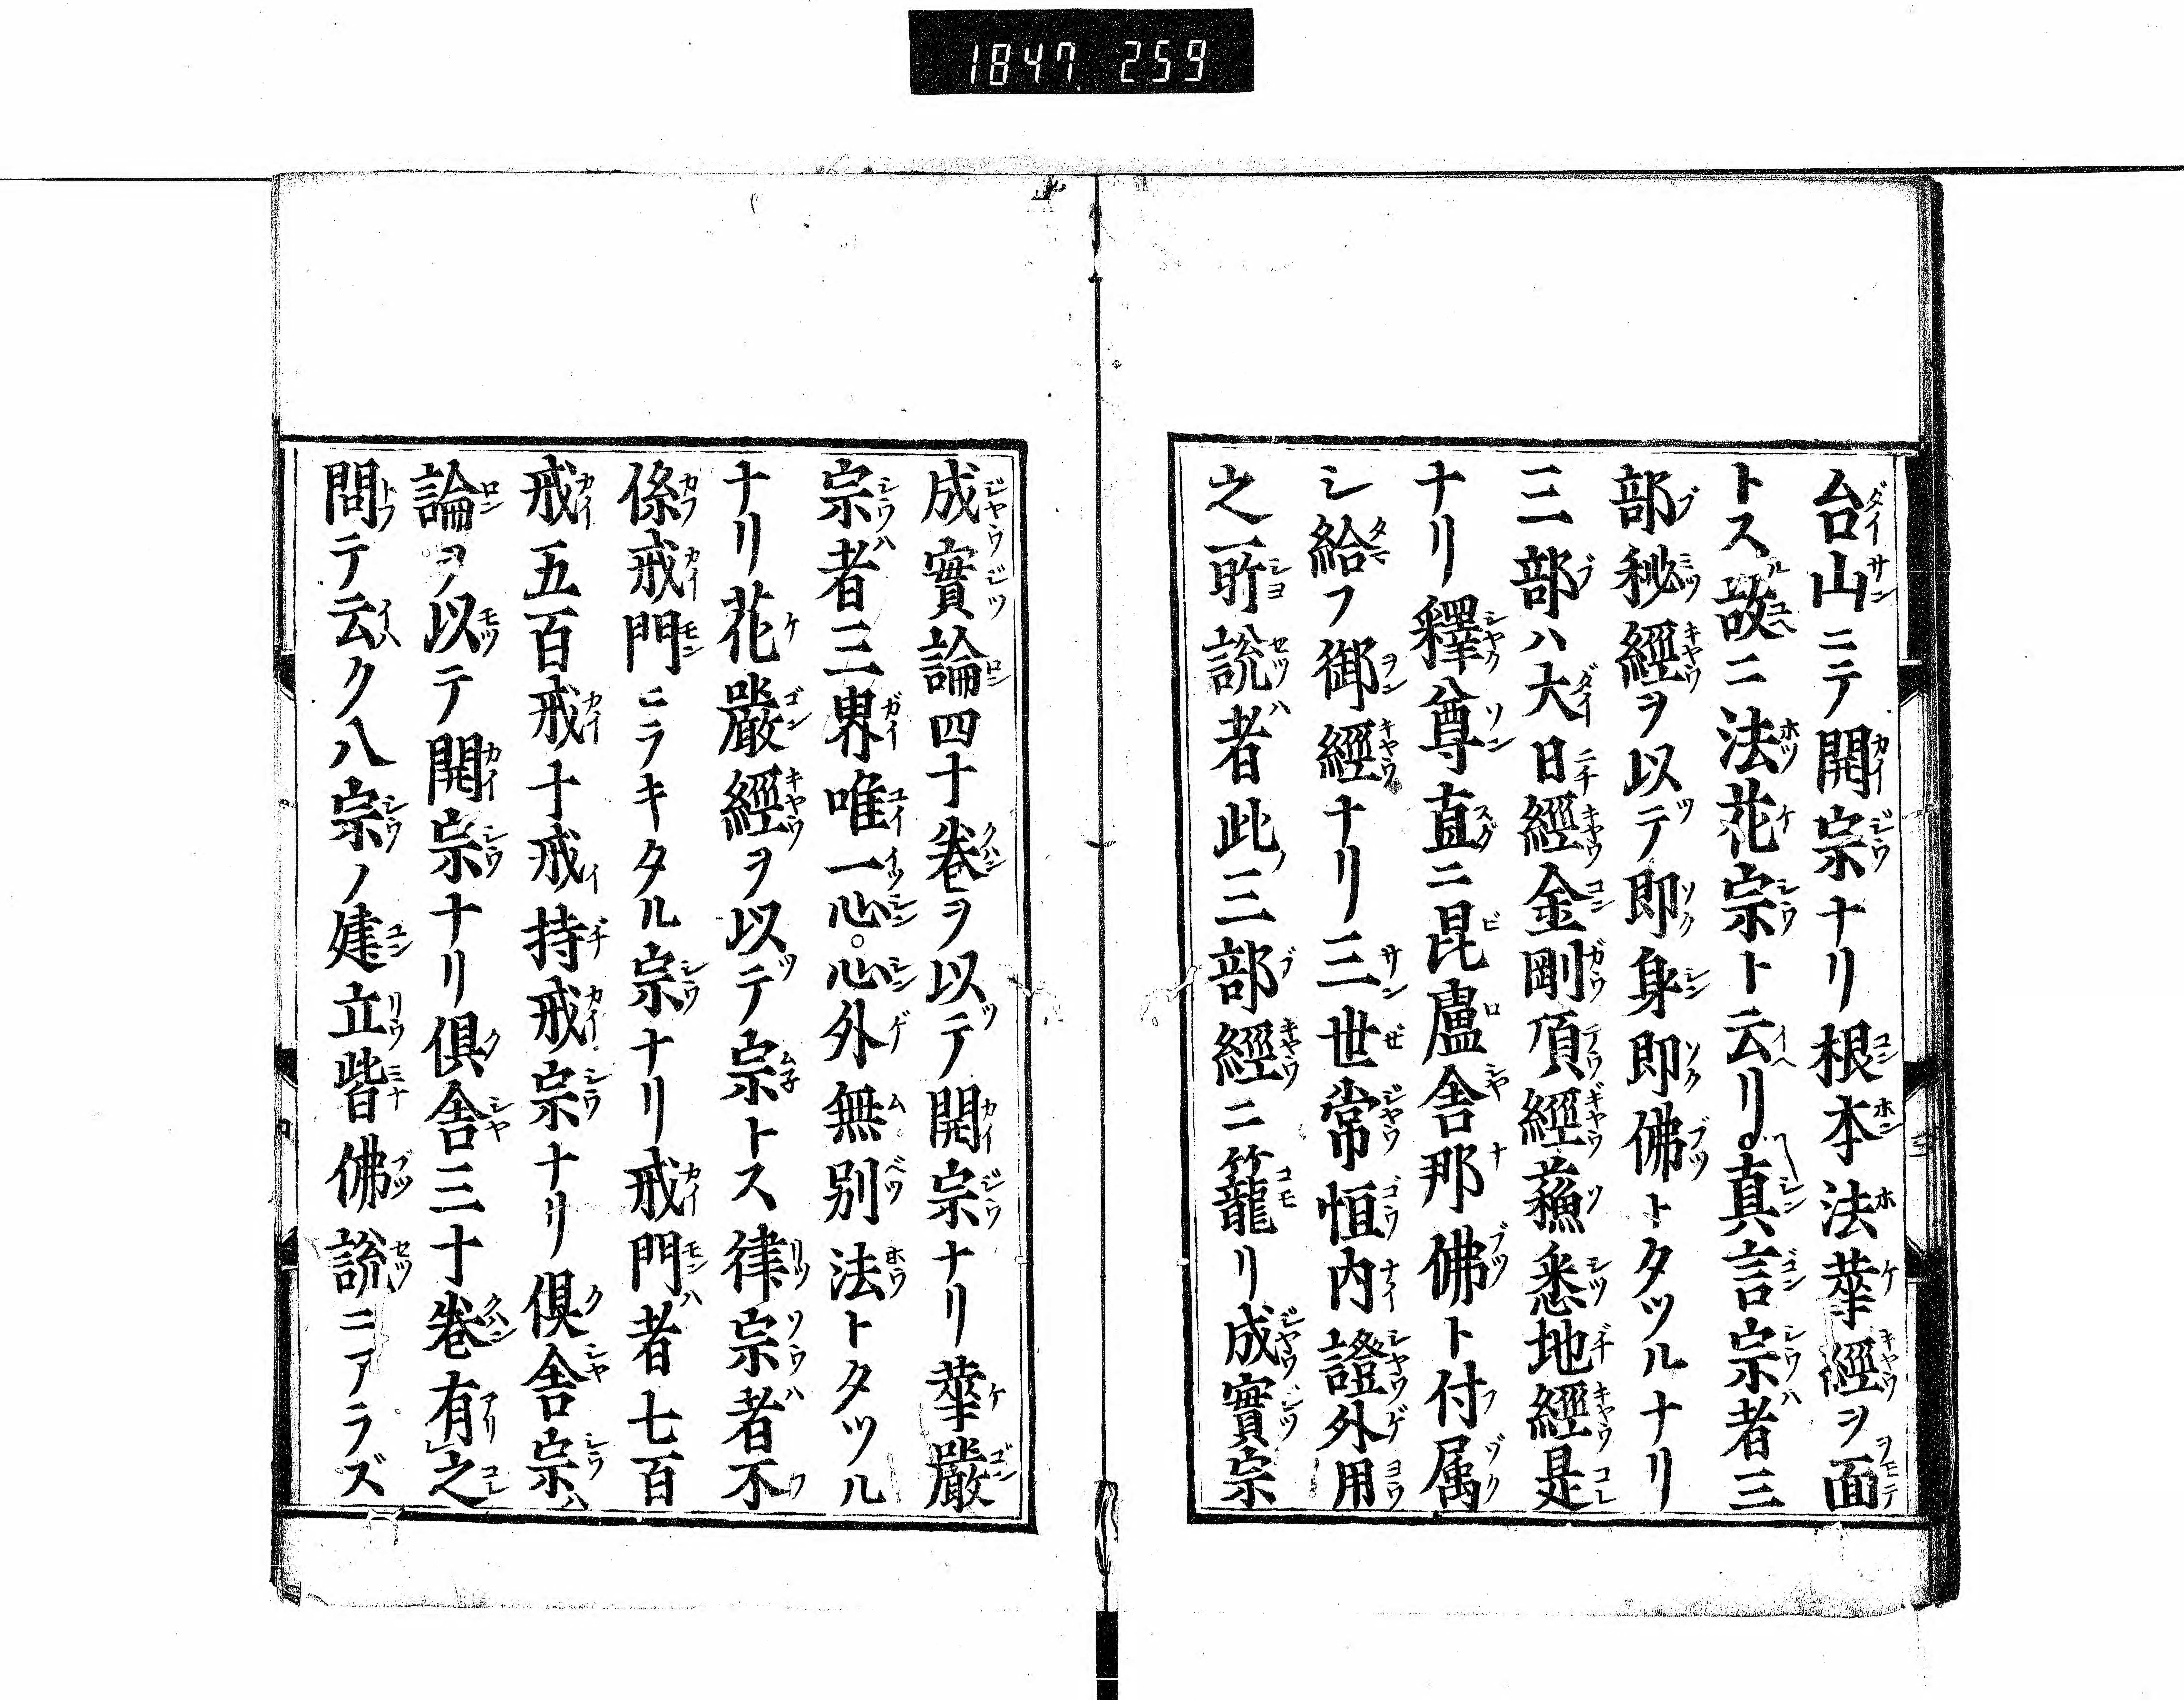 1847 259
台山ニテ開宗ナリ根本法華經ヲ面
トス故ニ法花宗ト云リ真言宗者三
部秘經ヲ以テ即身即佛トタツルナリ
三部ハ大日經金剛頂經蘓悉地經是
ナリ釋尊直ニ昆盧舎那佛ト付属
シ給フ御經ナリ三世常恒内證外用
之所說者此三部經ニ籠リ成實宗
成實論四十卷ヲ以テ開宗ナリ華嚴
宗者三界唯一心。心外無別法トタツル
ナリ花嚴經ヲ以テ宗トス律宗者不
係戒門ニラキタル宗ナリ戒門者七百
戒五百戒十戒持戒宗ナリ倶舎宗ハ
論ヲ以テ開宗ナリ倶舎三十卷有之
問テ云ク八宗ノ建立皆佛說ニアラズ